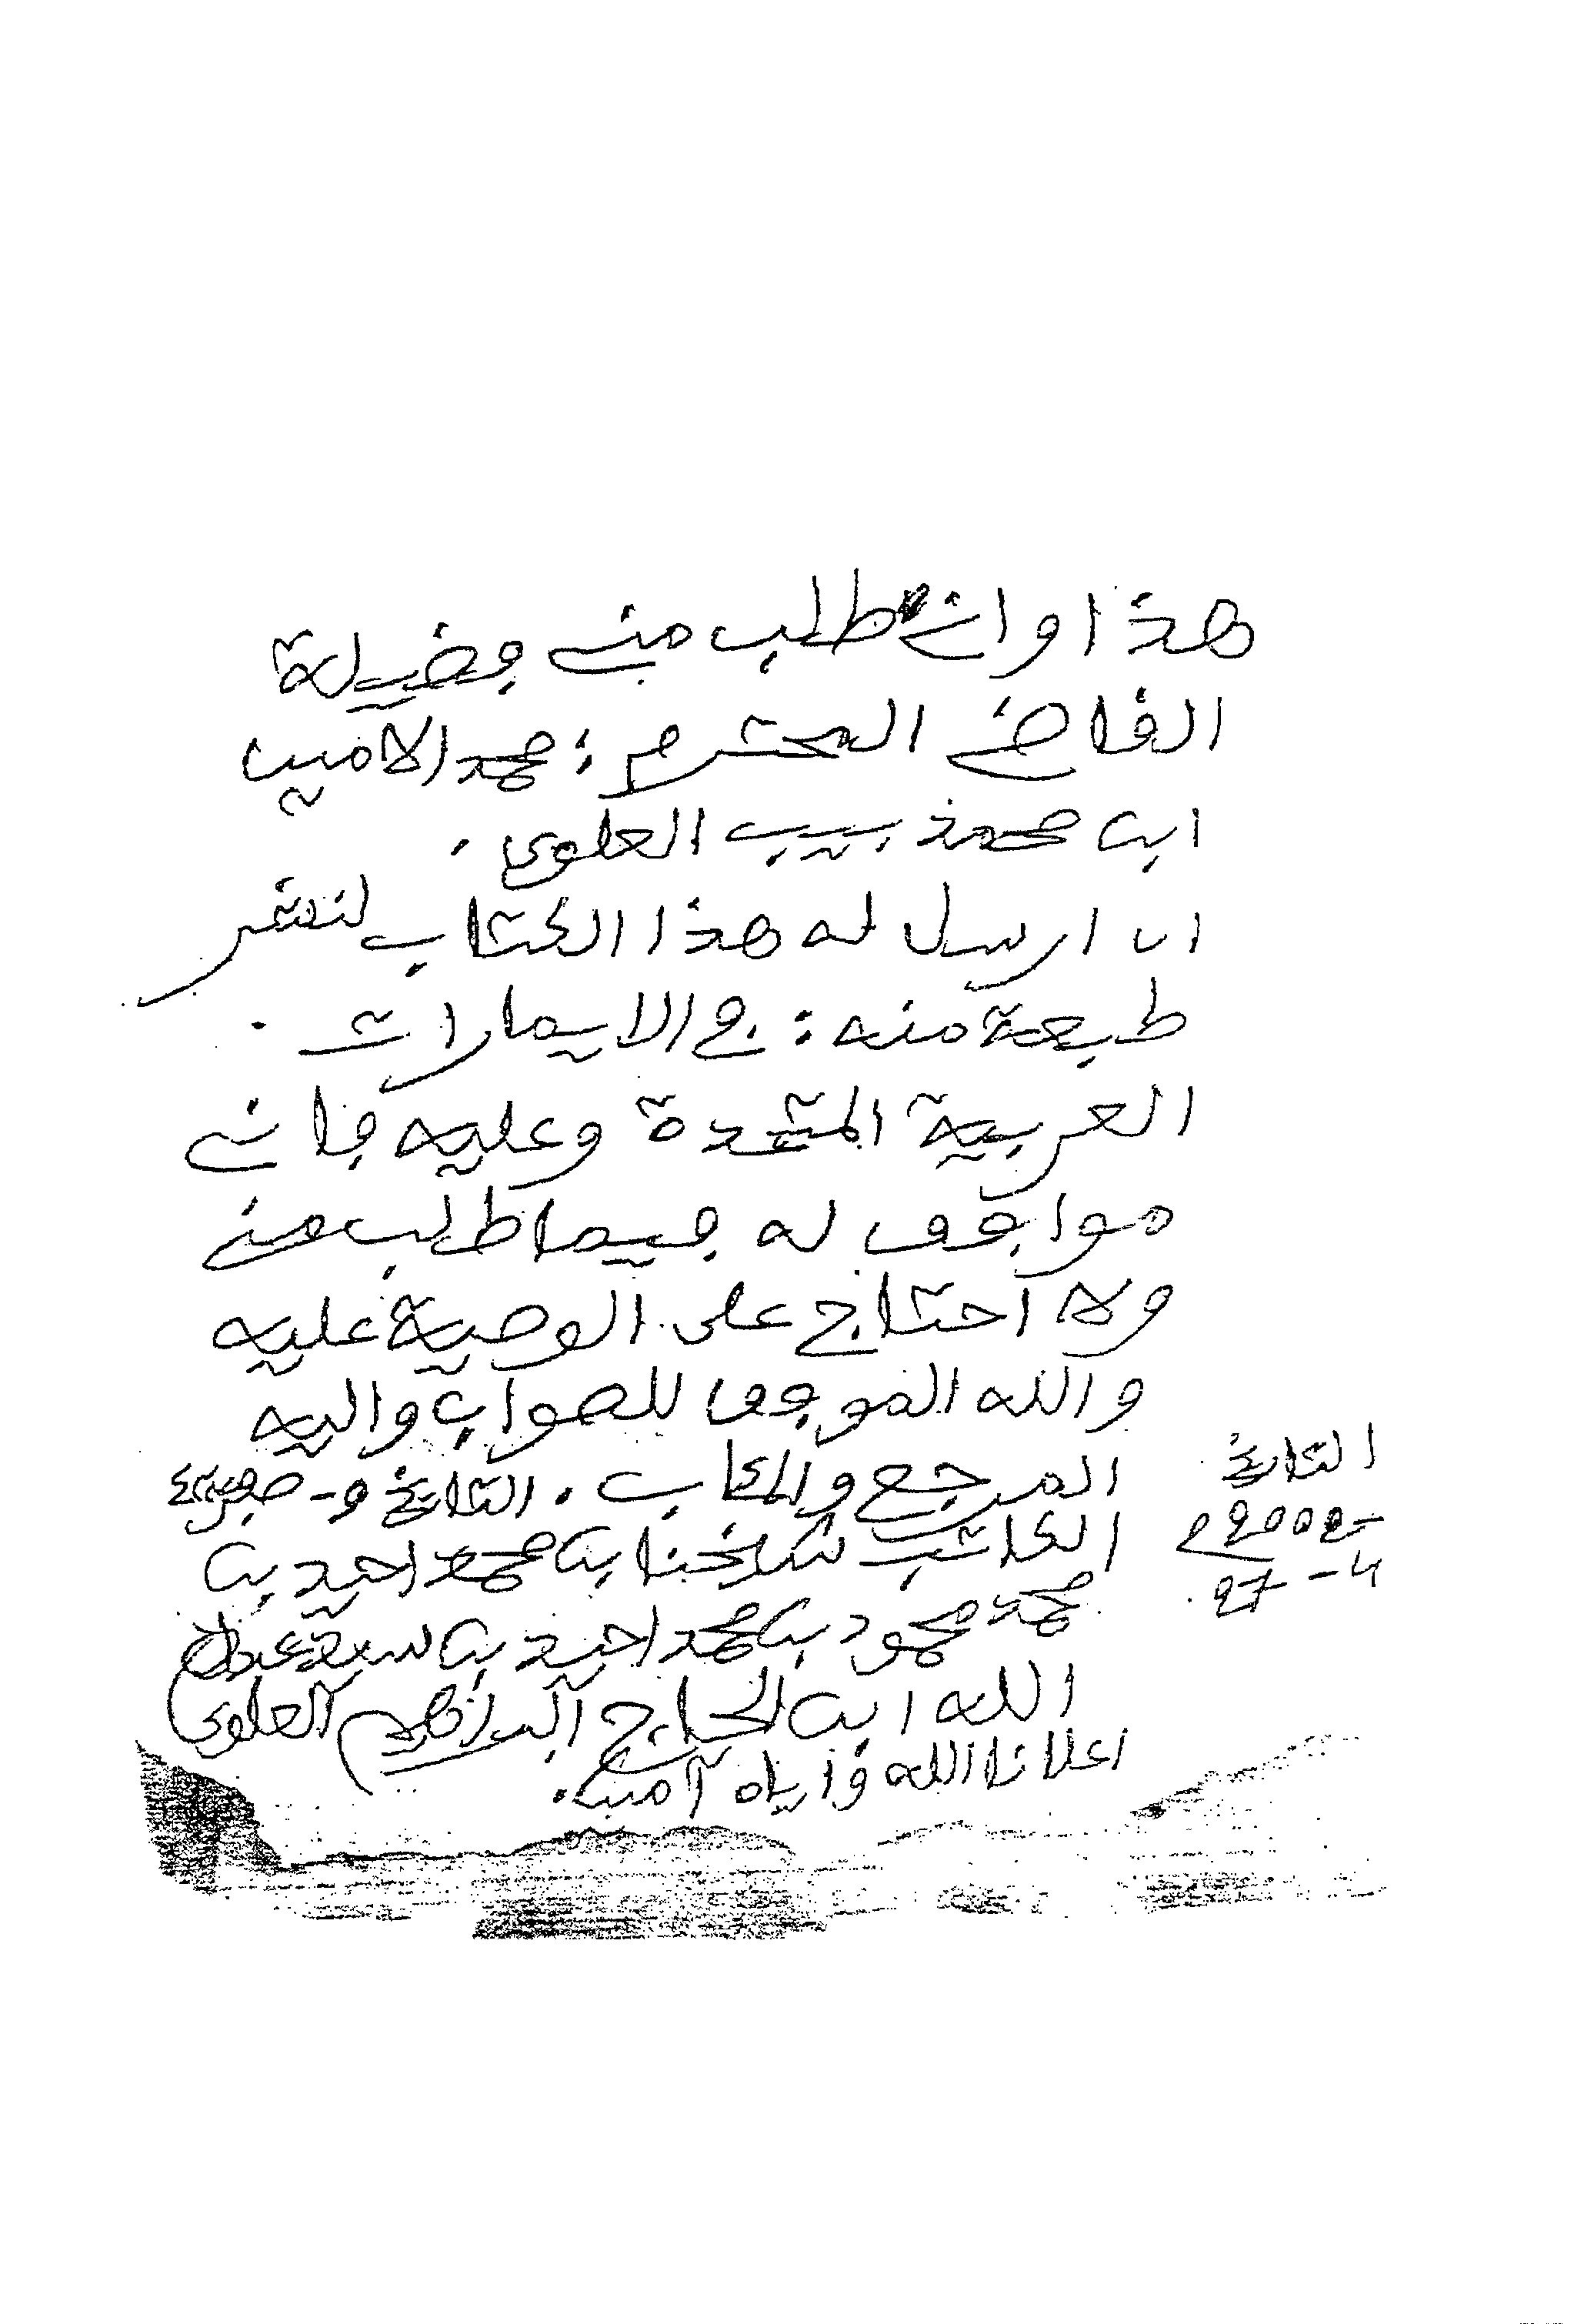 هذا وانى طلب منى فضيلة
القاضى المحترم : محمد الامين
ابن محمذ بيب العلوى .
ان ارسل له هذا الكتاب لنشر
طبعة منه : فى الايمارات .
العربية المتحدة وعليه فانى
موافق له فيما طلب منى
ولا احتاج على الوصية عليه
والله الموفق للصواب واليه
المرجع والمئاب . التاريخ 9 - صفر
التاريخ
2002
4 - 27
الكاتب شيخنا بن محمد احيد بن
محمد محمود بن محمد احيد بن سيد عبد
الله ابن الحاج ابراهيم العلوى
اعلانا الله واياه آمين .